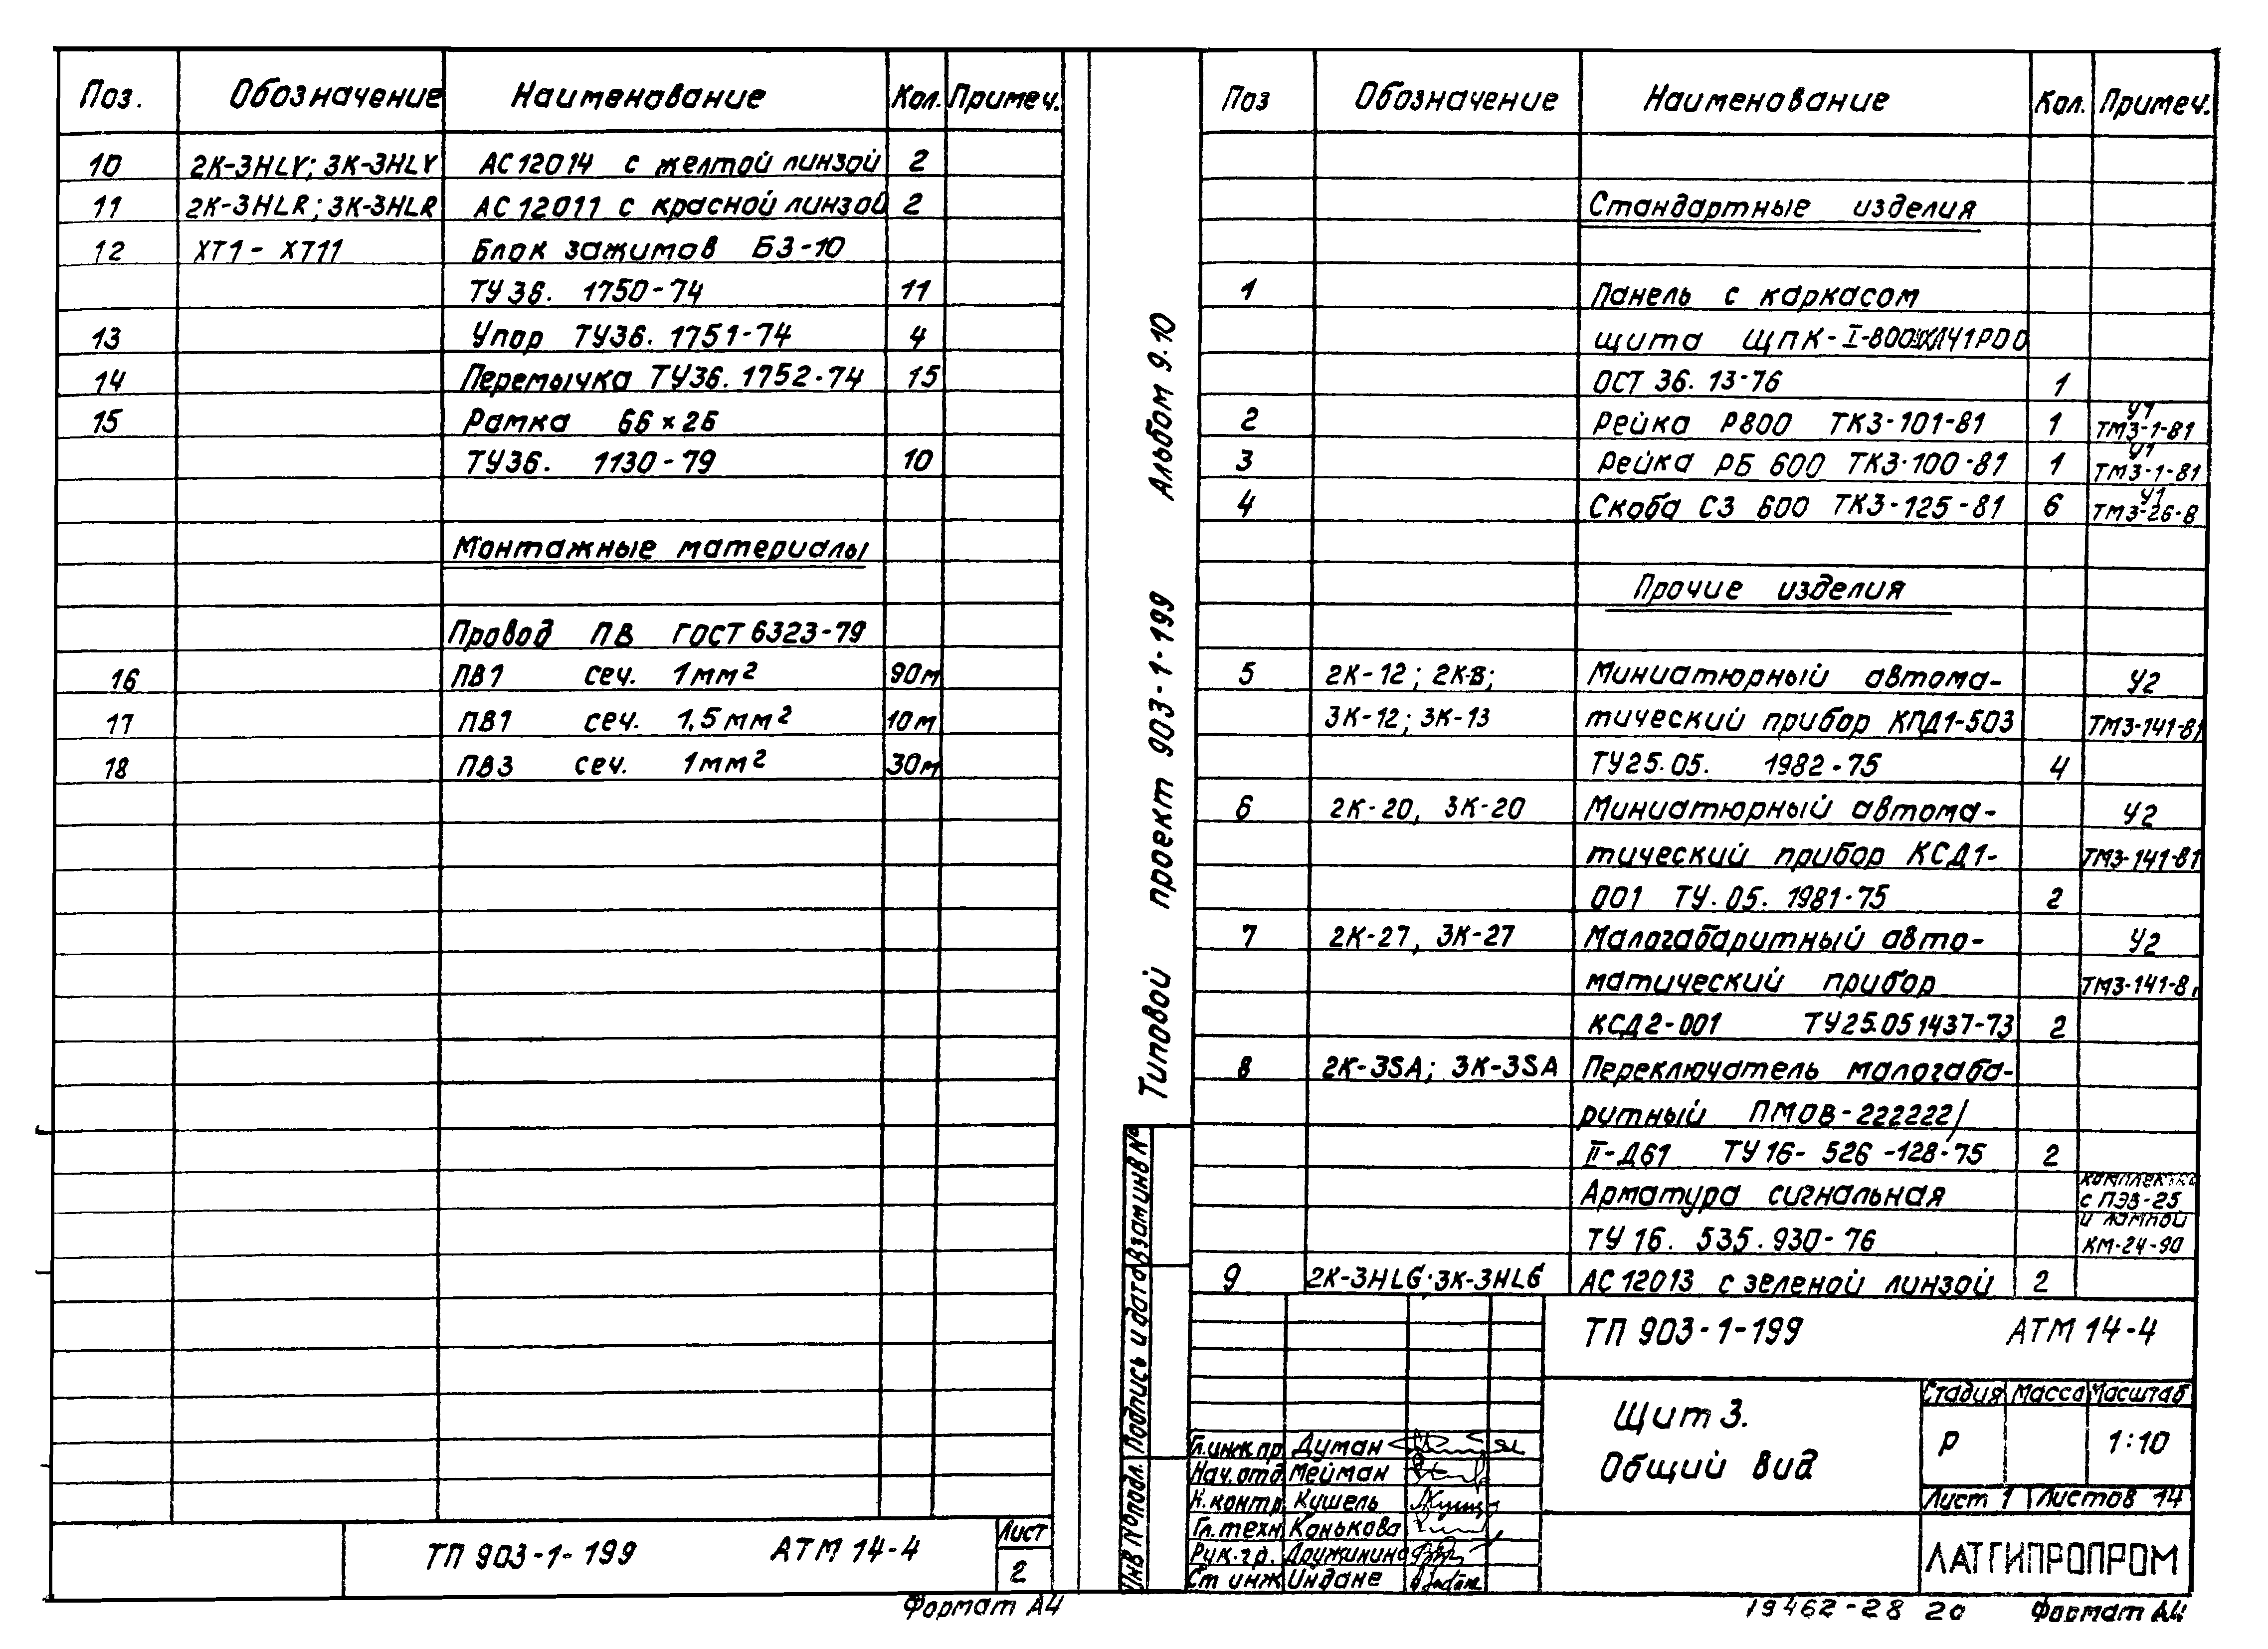 Поз. Обозначение Наименование Кол. Примеч.
10 2К-3HLY; 3К-3HLY АС12014 с желтой линзой 2
11 2К-3HLR; 3К-3HLR АС12011 с красной линзой 2
12 ХТ1- ХТ11 Блок зажимов БЗ-10
ТУ36. 1750-74 11
13 Упор ТУ36. 1751-74 4
14 Перемычка ТУ36. 1752-74 15
15 Рамка 66×26
ТУ36. 1130-79 10
Монтажные материалы
Провод ПВ ГОСТ 6323-79
16 ПВ1 сеч. 1мм² 90м
17 ПВ1 сеч. 1,5мм² 10м
18 ПВ3 сеч. 1мм² 30м
ТП 903-1-199 АТМ 14-4
Лист
2
Формат А4
Типовой проект 903-1-199 Альбом 9.10
Взам инв №
Подпись и дата
Инв № подл.
Поз Обозначение Наименование Кол. Примеч.
Стандартные изделия
1 Панель с каркасом
щита
ОСТ 36. 13-76 1
2 Рейка Р800 ТК3-101-81 1 У1 ТМ3-1-81
3 Рейка РБ 600 ТК3-100-81 1 У1 ТМ3-1-81
4 Скоба С3 600 ТК3-125-81 6 У1 ТМ3-26-8
Прочие изделия
5 2К-12; Миниатюрный автома- У2
3К-12; 3К-13 тический прибор КПД1-503 ТМ3-141-81
ТУ25.05. 1982-75 4
6 2К-20, 3К-20 Миниатюрный автома- У2
тический прибор КСД1- ТМ3-141-81
001 ТУ.05. 1981-75 2
7 2К-27, 3К-27 Малогабаритный авто- У2
матический прибор ТМ3-141-81
КСД2-001 ТУ25.051437-73 2
8 2К-3SA; 3К-3SA Переключатель малогаба-
ритный ПМОВ-222222/
II-Д61 ТУ16- 526-128-75 2
Арматура сигнальная
с ПЭВ-25
ТУ 16. 535.930-76 и лампой
КМ-24-90
9 2К-3HLG; 3К-3HLG АС12013 с зеленой линзой 2
ТП 903-1-199 АТМ 14-4
Щит 3.
Общий вид
Стадия Масса Масштаб
Р 1:10
Лист 1 Листов 14
ЛАТГИПРОПРОМ
Гл.инж.пр Думан
Нач.отд. Мейман
Н.контр Кушель
Гл.техн Канькова
Рук.гр. Дружинина
Ст инж Индане
19462-28 20 Формат А4